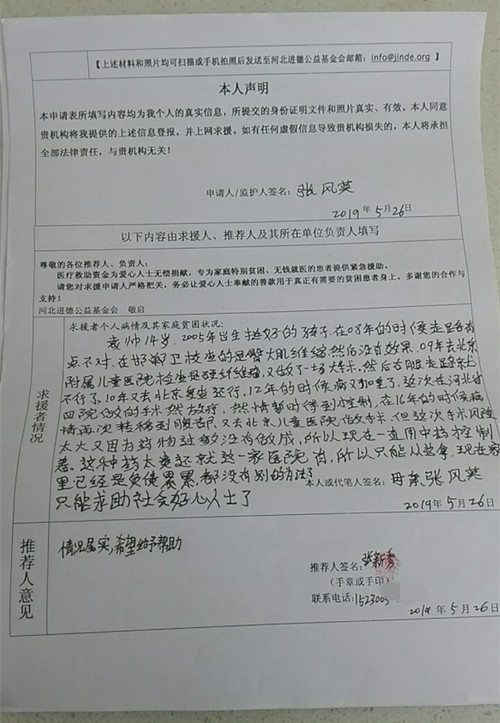 【上述材料和照片均可扫描或手机拍照后发送至河北进德公益基金会邮箱：info@jinde.org 】
本人声明
本申请表所填写内容均为我个人的真实信息，所提交的身份证明文件和照片真实、有效。本人同意
贵机构将我提供的上述信息登报，并上网求援。如有任何虚假信息导致贵机构损失的，本人将承担
全部法律责任，与贵机构无关！
申请人/监护人签名：张风英
2019年5月26日
以下内容由求援人、推荐人及其所在单位负责人填写
尊敬的各位推荐人、负责人：
医疗救助资金为爱心人士无偿捐献，专为家庭特别贫困、无钱就医的患者提供紧急援助。
请您对求援申请人严格把关，务必让爱心人士奉献的善款用于真正有需要的贫困患者身上。多谢您的合作与
支持！
河北进德公益基金会 敬启
求援者情况
求援者个人病情及其家庭贫困状况：
帅14岁，2005年出生挺好的孩子，在08年的时候走路有
点不对，在 检查的是臀大肌萎缩，然后没有效果，09年去北京
附属儿童医院检查是硬纤维瘤，又做了一场大手术，然后右腿走路就
不行了，10年又去北京复查还行，12年的时候病又加重了，这次在河北省
四院做的手术，然后放疗，然后暂时得到控制，在16年的时候病
情再次转移到腹部，又去北京儿童医院做手术，但这次手术风险
太大又因为药物过敏没有做成，所以现在一直用中药控制
着，这种药太贵还就这一家医院有，所以只能从这拿，现在家
里已经是负债累累，都没有别的办法了
只能求助社会好心人士了
本人或代笔人签名：母亲张风英
2019年5月26日
推荐人意见
情况属实，希望给予帮助
推荐人签名：张新
（手章或手印）
联系电话：1523005
2019年5月26日